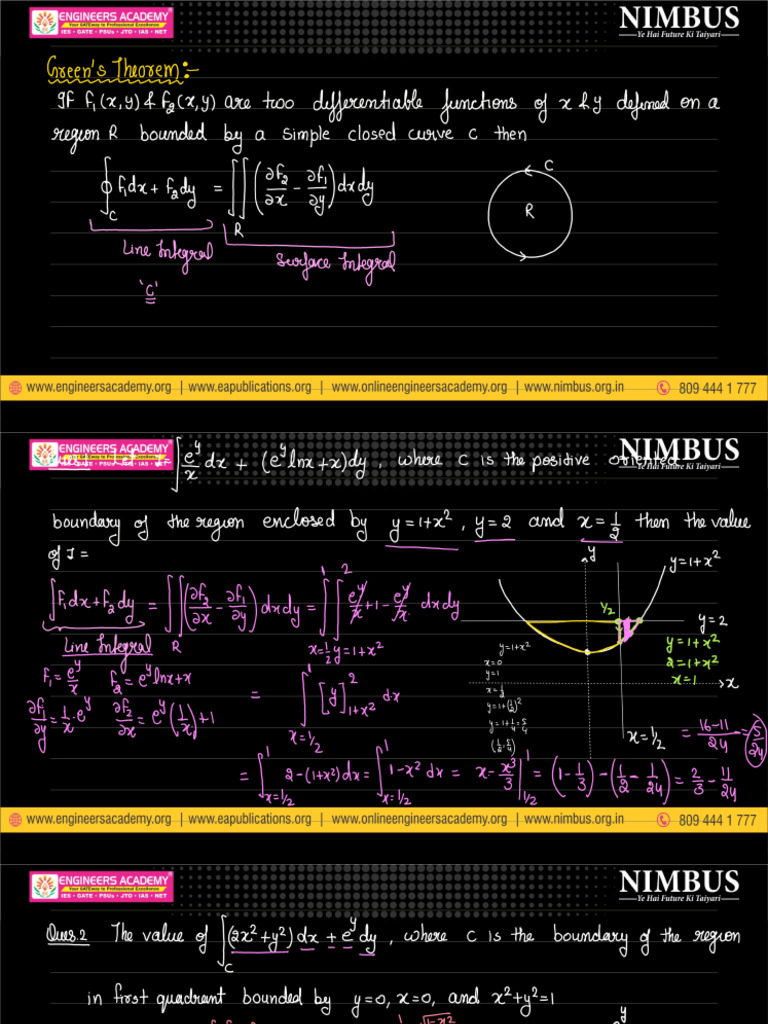 ENGINEERS ACADEMY
Your GATEway to Professional Excellence
IES • GATE • PSUs • JTO • IAS • NET
NIMBUS
Ye Hai Future Ki Taiyari
Green's Theorem:-
If F₁(x,y) & F₂(x,y) are two differentiable functions of x & y defined on a
region R bounded by a simple closed curve c then
∮_C F₁dx + F₂dy = ∬_R (∂F₂/∂x - ∂F₁/∂y) dxdy
C
R
Line Integral
Surface Integral
'C'
www.engineersacademy.org | www.eapublications.org | www.onlineengineersacademy.org | www.nimbus.org.in 809 444 1 777
ENGINEERS ACADEMY
IES • GATE • PSUs • JTO • IAS • NET
NIMBUS
Ye Hai Future Ki Taiyari
∫ e^y/x dx + (e^y lnx + x)dy, where C is the positive oriented
boundary of the region enclosed by y=1+x², y=2 and x=1/2 then the value
of I =
∫F₁dx + F₂dy = ∬_R (∂F₂/∂x - ∂F₁/∂y) dxdy = ∫_{x=1/2}^{1} ∫_{y=1+x²}^{2} e^y/x + 1 - e^y/x dxdy
Line Integral
F₁ = e^y/x F₂ = e^y lnx + x
∂F₁/∂y = 1/x · e^y ∂F₂/∂x = e^y (1/x) + 1
= ∫_{x=1/2}^{1} [y]_{1+x²}^{2} dx
= ∫_{x=1/2}^{1} 2-(1+x²)dx = ∫_{x=1/2}^{1} 1-x² dx = x - x³/3 |_{1/2}^{1} = (1 - 1/3) - (1/2 - 1/24) = 2/3 - 11/24
= (16-11)/24 = 5/24
y
y=1+x²
1/2
y=2
y=1+x²
2=1+x²
x=1
x
x=1/2
y=1+x²
x=0
y=1
x=1/2
y=1+(1/2)²
y=1+1/4=5/4
(1/2, 5/4)
www.engineersacademy.org | www.eapublications.org | www.onlineengineersacademy.org | www.nimbus.org.in 809 444 1 777
ENGINEERS ACADEMY
Your GATEway to Professional Excellence
IES • GATE • PSUs • JTO • IAS • NET
NIMBUS
Ye Hai Future Ki Taiyari
Ques.2 The value of ∫_C (2x²+y²) dx + e^y dy, where C is the boundary of the region
in first quadrant bounded by y=0, x=0, and x²+y²=1
y